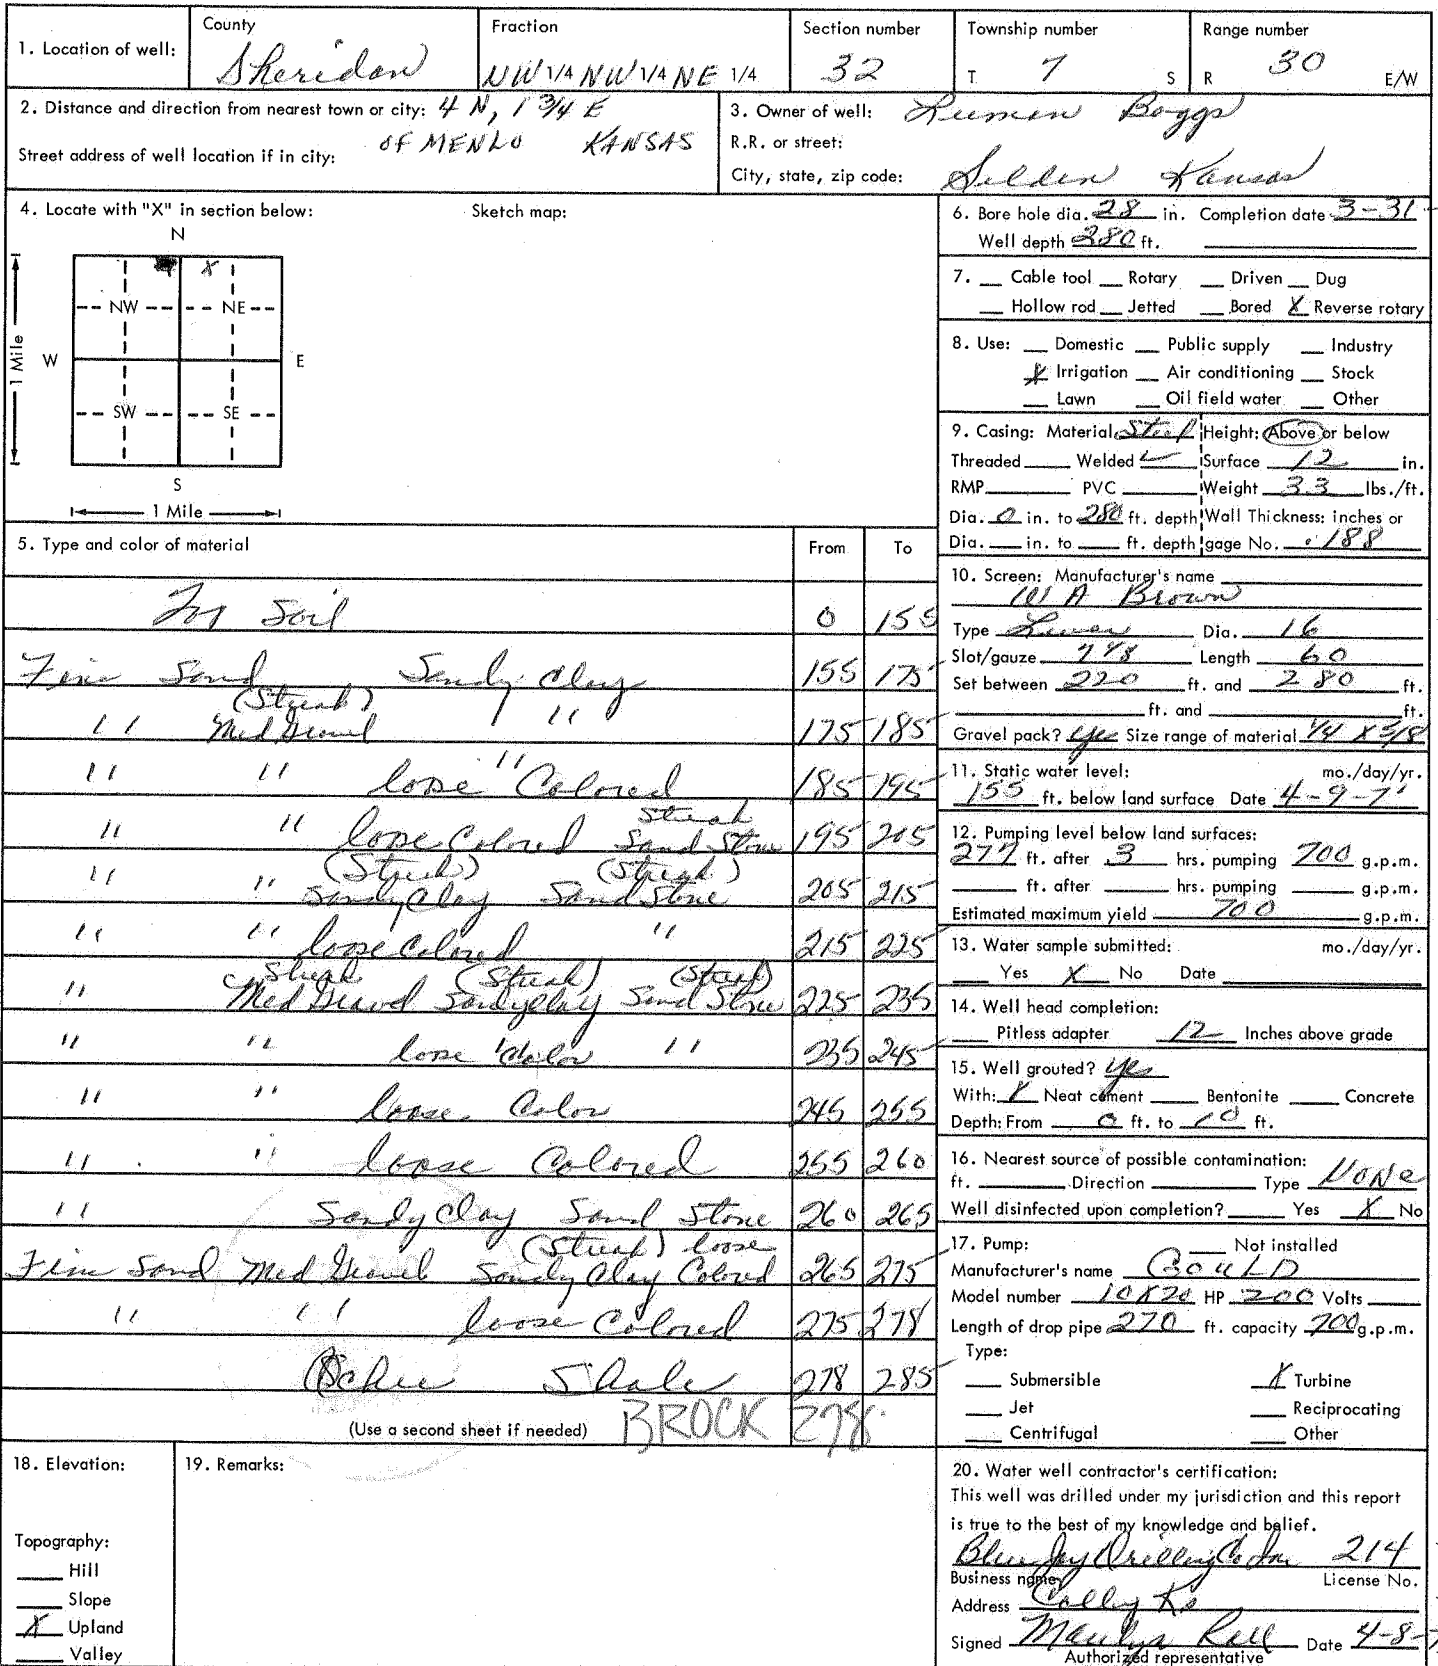 1. Location of well: County Sheridan Fraction NW 1/4 NW 1/4 NE 1/4 Section number 32 Township number T 7 S Range number R 30 E/W
2. Distance and direction from nearest town or city: 4 N, 1 3/4 E
OF MENLO KANSAS
Street address of well location if in city:
3. Owner of well: Boggs
R.R. or street:
City, state, zip code: Selden Kansas
4. Locate with "X" in section below: Sketch map:
N
X
NW NE
W E
1 Mile
SW SE
S
1 Mile
5. Type and color of material From To
Top Soil 0 155
Fine Sand Sandy Clay 155 175
(Streak)
" Med Gravel " 175 185
" " loose " Colored 185 195
Streak
" " loose Colored Sand Stone 195 205
(Streak) (Streak)
" " Sandy Clay Sand Stone 205 215
" " loose Colored " 215 225
Streak (Streak) (Streak)
" Med Gravel Sandy Clay Sand Stone 225 235
" " loose Color " 235 245
" " loose Color 245 255
" " loose Colored 255 260
" Sandy Clay Sand Stone 260 265
(Streak) loose
Fine Sand Med Gravel Sandy Clay Colored 265 275
" " loose Colored 275 278
Shale 278 285
(Use a second sheet if needed) BROCK 278
6. Bore hole dia. 28 in. Completion date 3-31-
Well depth 280 ft.
7. Cable tool Rotary Driven Dug
Hollow rod Jetted Bored X Reverse rotary
8. Use: Domestic Public supply Industry
X Irrigation Air conditioning Stock
Lawn Oil field water Other
9. Casing: Material Steel Height: Above or below
Threaded Welded ✓ Surface 12 in.
RMP PVC Weight 33 lbs./ft.
Dia. 0 in. to 280 ft. depth Wall Thickness: inches or
Dia. in. to ft. depth gage No. .188
10. Screen: Manufacturer's name
W A Brown
Type Dia. 16
Slot/gauze Length 60
Set between 220 ft. and 280 ft.
ft. and ft.
Gravel pack? yes Size range of material 1/4 X 3/8
11. Static water level: mo./day/yr.
155 ft. below land surface Date 4-9-7
12. Pumping level below land surfaces:
277 ft. after 3 hrs. pumping 700 g.p.m.
ft. after hrs. pumping g.p.m.
Estimated maximum yield 700 g.p.m.
13. Water sample submitted: mo./day/yr.
Yes X No Date
14. Well head completion:
Pitless adapter 12 Inches above grade
15. Well grouted? yes
With: X Neat cement Bentonite Concrete
Depth: From 0 ft. to 10 ft.
16. Nearest source of possible contamination:
ft. Direction Type NONe
Well disinfected upon completion? Yes X No
17. Pump: Not installed
Manufacturer's name GOULD
Model number 10X20 HP 200 Volts
Length of drop pipe 270 ft. capacity 700 g.p.m.
Type:
Submersible X Turbine
Jet Reciprocating
Centrifugal Other
18. Elevation:
Topography:
Hill
Slope
X Upland
Valley
19. Remarks:
20. Water well contractor's certification:
This well was drilled under my jurisdiction and this report
is true to the best of my knowledge and belief.
Blue Jay Drilling Co Inc 214
Business name License No.
Address Colby Ks
Signed Date 4-8-
Authorized representative